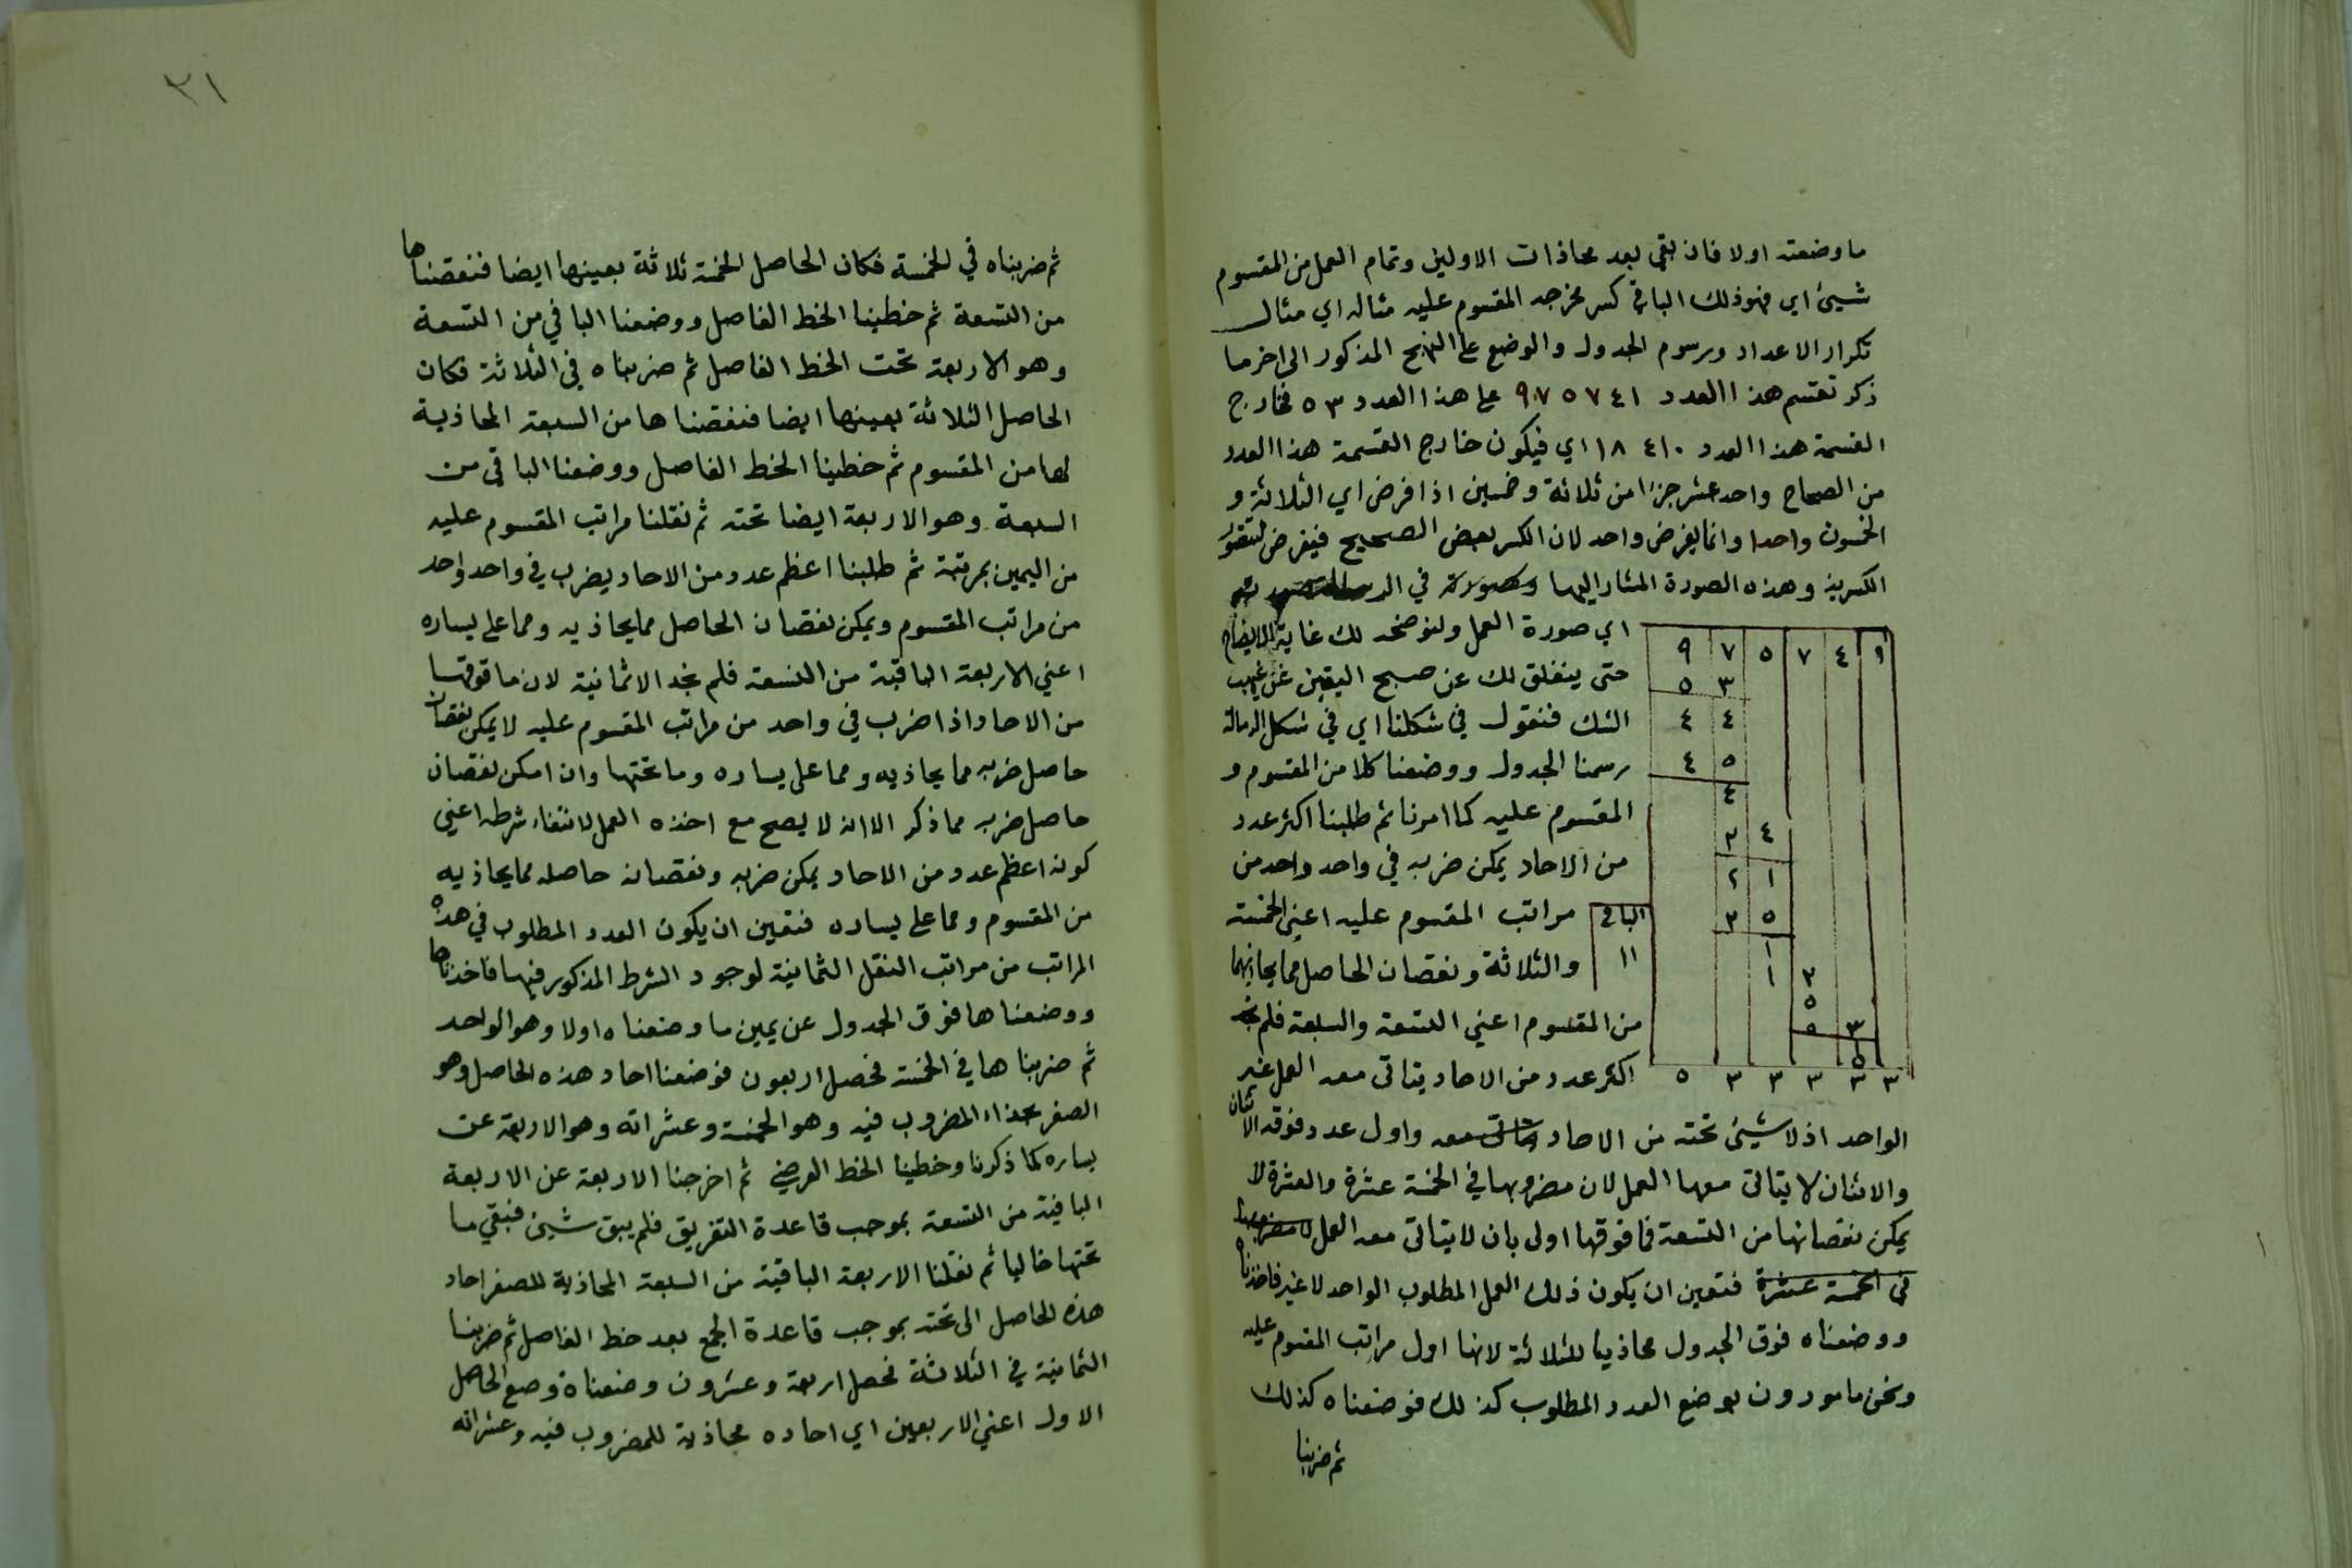 ما وضعته اولا فان بقي بعد محاذات الاولين وتمام العمل من المقسوم
شيئ اي فهو ذلك الباقي كسر مخرجه المقسوم عليه مثاله اي مثال
تكرار الاعداد ورسوم الجدول والوضع على النهج المذكور الى اخر ما
ذكر تقسم هذا العدد ٩٧٥٧٤١ على هذا العدد ٥٣ فخارج
القسمة هذا العدد ١٨٤١٠ اي فيكون خارج القسمة هذا العدد
من الصحاح واحد عشر جزءا من ثلاثة وخمسين اذا فرض اي الثلاثة و
الخمسون واحدا وانما يفرض واحد لان الكسر بعض الصحيح فيفرض لتقوا
الكسرية وهذه الصورة المشار اليها وصورته في
اي صورة العمل ولنوضحه لك غاية الايضاح
حتى ينفلق لك عن صبح اليقين غيهب
الشك فنقول في شكلنا اي في شكل الرسالة
رسمنا الجدول ووضعنا كلا من المقسوم و
المقسوم عليه كما امرنا ثم طلبنا اكثر عدد
من الاحاد يمكن ضربه في واحد واحد من
مراتب المقسوم عليه اعني الخمسة
والثلاثة ونقصان الحاصل مما يحاذيهما
من المقسوم اعني التسعة والسبعة فلم نجد
اكثر عدد من الاحاد يتاتى معه العمل غير
٩ ٧ ٥ ٧ ٤ ١
٥ ٣
٤ ٤
٤ ٥
٤
٢ ٤
٢ ١
٢ ٥
١
١ ٢
٥
٥ ٣
٥
٥ ٣ ٣ ٣ ٣ ٣
الباقي
١١
الواحد اذ لا شيئ تحته من الاحاد معه واول عدد فوقه الاثنان
والاثنان لا يتاتى معها العمل لان مضروبها في الخمسة عشرة والعشرة لا
يمكن نقصانها من التسعة فما فوقها اولى بان لا يتاتى معه العمل لا مضروبها
في الخمسة عشرة فتعين ان يكون ذلك العمل المطلوب الواحد لا غير فاخذناه
ووضعناه فوق الجدول محاذيا للثلاثة لانها اول مراتب المقسوم عليه
ونحن مامورون بوضع العدد المطلوب كذلك فوضعناه كذلك
ثم ضربنا
٣١
ثم ضربناه في الخمسة فكان الحاصل الخمسة ثلاثة بعينها ايضا فنقصناها
من التسعة ثم خطينا الخط الفاصل ووضعنا الباقي من التسعة
وهو الاربعة تحت الخط الفاصل ثم ضربناه في الثلاثة فكان
الحاصل الثلاثة بعينها ايضا فنقصناها من السبعة المحاذية
لها من المقسوم ثم خطينا الخط الفاصل ووضعنا الباقي من
السبعة وهو الاربعة ايضا تحته ثم نقلنا مراتب المقسوم عليه
من اليمين بمرتبة ثم طلبنا اعظم عدد من الاحاد يضرب في واحد واحد
من مراتب المقسوم ويمكن نقصان الحاصل مما يحاذيه ومما على يساره
اعني الاربعة الباقية من التسعة فلم نجد الا ثمانية لان ما فوقها
من الاحاد اذا ضرب في واحد من مراتب المقسوم عليه لا يمكن نقصان
حاصل ضربه مما يحاذيه ومما على يساره وما تحتها وان امكن نقصان
حاصل ضربه مما ذكر الا انه لا يصح مع اخذه العمل لانتفاء شرطه اعني
كونه اعظم عدد من الاحاد يمكن ضربه ونقصان حاصله مما يحاذيه
من المقسوم ومما على يساره فتعين ان يكون العدد المطلوب في هذه
المراتب من مراتب النقل الثمانية لوجود الشرط المذكور فيها فاخذناها
ووضعناها فوق الجدول عن يمين ما وضعناه اولا وهو الواحد
ثم ضربناها في الخمسة فحصل اربعون فوضعنا احاد هذه الحاصل وهو
الصفر بحذاء المضروب فيه وهو الخمسة وعشراته وهو الاربعة عن
يساره كما ذكرنا وخطينا الخط العرضي ثم اخرجنا الاربعة عن الاربعة
الباقية من التسعة بموجب قاعدة التفريق فلم يبق شيئ فبقي ما
تحتها خاليا ثم نقلنا الاربعة الباقية من السبعة المحاذية للصفر احاد
هذه الحاصل الى تحته بموجب قاعدة الجمع بعد خط الفاصل ثم ضربنا
الثمانية في الثلاثة فحصل اربعة وعشرون وضعناه وضع الحاصل
الاول اعني الاربعين اي احاده محاذية للمضروب فيه وعشراته